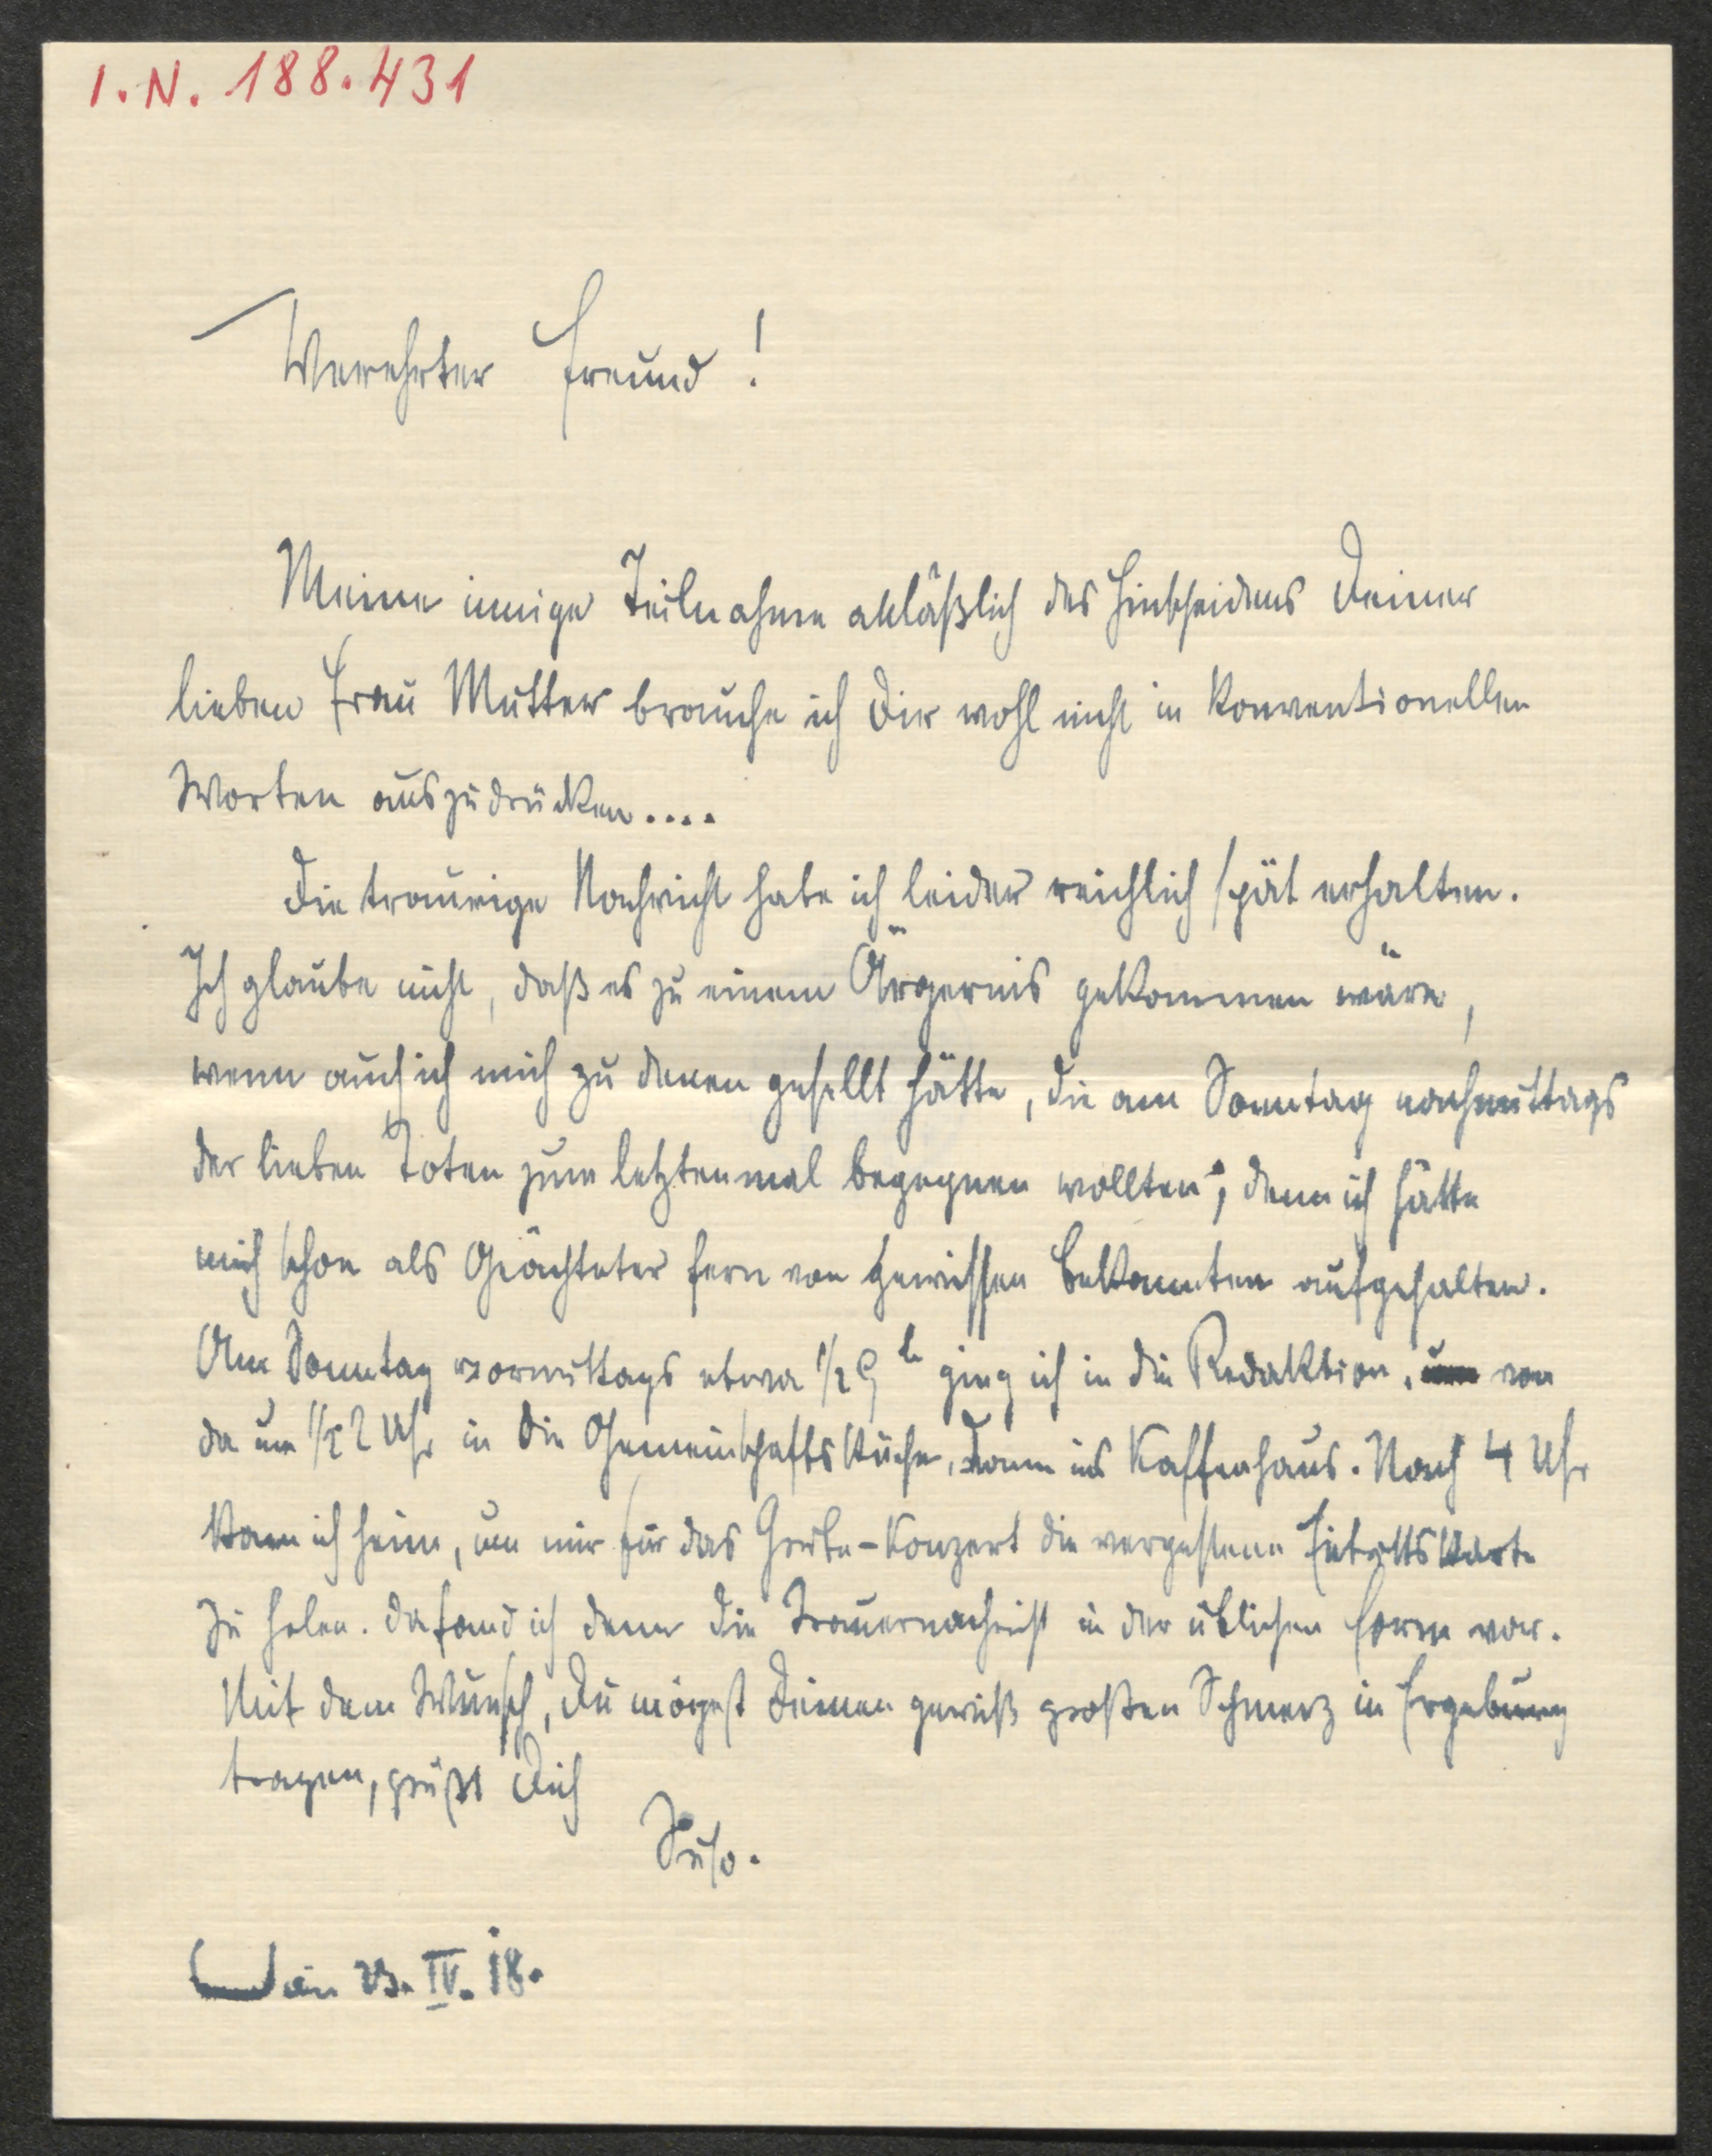 I.N. 188.431
Verehrter Freund!
Meine innige Teilnahme anläßlich des Hinscheidens Deiner
lieben Frau Mutter brauche ich Dir wohl nicht in konventionellen
Worten auszudrücken....
Die traurige Nachricht habe ich leider reichlich spät erhalten.
Ich glaube nicht, daß es zu einem Ärgernis gekommen wäre,
wenn auch ich mich zu denen gesellt hätte, die am Sonntag nachmittags
der lieben Toten zum letztenmal begegnen wollten; denn ich hätte
mich schon als Geächteter fern von gewissen Bekannten aufgehalten.
Am Sonntag vormittags etwa 1/2 9h ging ich in die Redaktion, von
da um 1/2 2 Uhr in die Gemeinschaftsküche, dann ins Kaffeehaus. Nach 4 Uhr
kam ich heim, um mir für das -Konzert die vergessene Eintrittskarte
zu holen. Da fand ich denn die Trauernachricht in der üblichen Form vor.
Mit dem Wunsch, Du mögest Deinen gewiß großen Schmerz in Ergebung
tragen, grüßt Dich
Suso.
23. IV. 18.